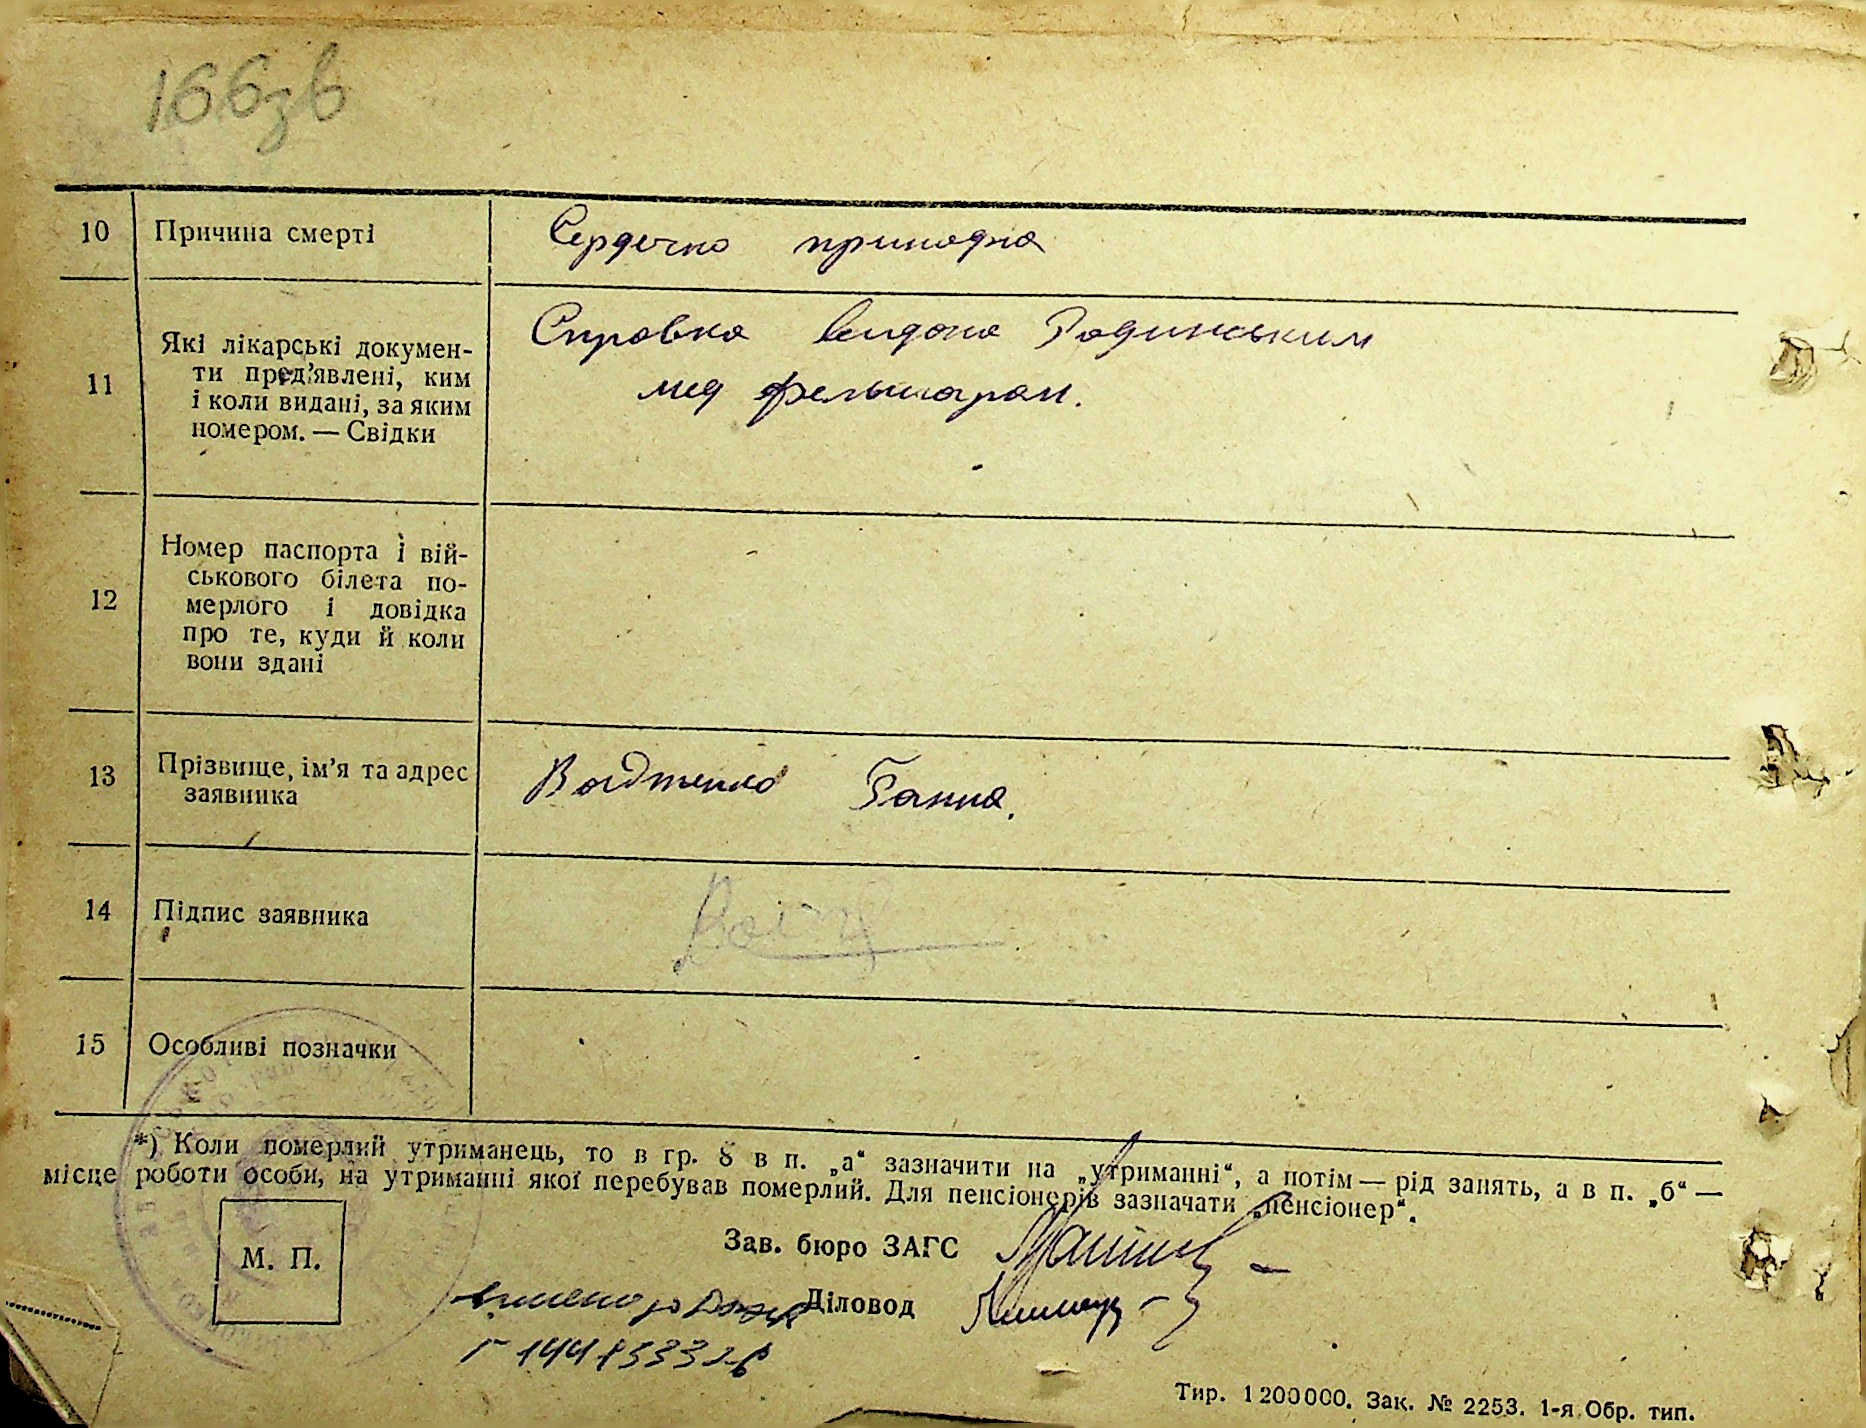 166зв
10 Причина смерті Сердечно припадка
11 Які лікарські докумен-
ти пред’явлені, ким
і коли видані, за яким
номером. — Свідки
Справка видана Радинським
мед фельшаром.
12 Номер паспорта і вій-
ськового білета по-
мерлого і довідка
про те, куди й коли
вони здані
13 Прізвище, ім’я та адрес
заявника
Ганна.
14 Підпис заявника
15 Особливі позначки
*) Коли померлий утриманець, то в гр. 8 в п. „а“ зазначити на „утриманні“, а потім — рід занять, а в п. „б“ —
місце роботи особи, на утриманні якої перебував померлий. Для пенсіонерів зазначати „пенсіонер“.
М. П.
Зав. бюро ЗАГС
Діловод
Тир. 1200000. Зак. № 2253. 1-я Обр. тип.